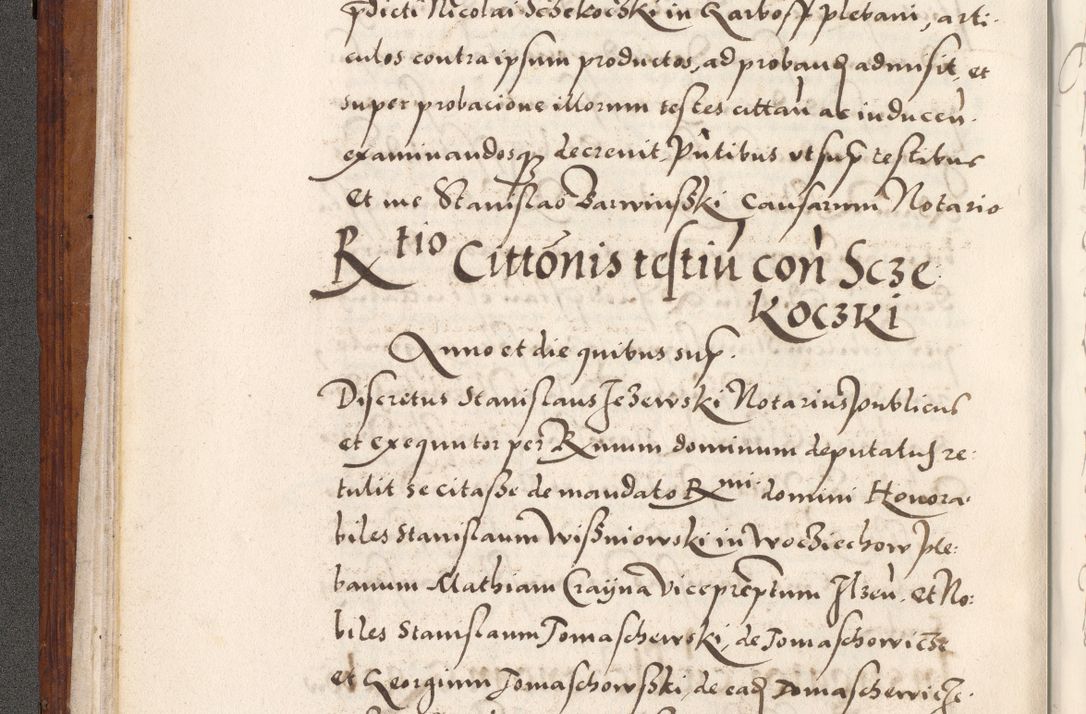 p̃dicti Nicolai Sczekoczski in Garboff plebani, arti-
culos contra ipsum productos, ad proband admisit, et
super probacione illorum testes cittań ac induceń
examinandosq decrevit, Pn̄tibus vt sup testibus
Et me Stanislao Barwinsski Causarum Notario
Rtio Cittõnis testiū con̄ Scze
koczki
Anno et die quibus sup.
Discretus Stanislaus Jezewski Notarius publicus
et Exequutor per Rmum dominum deputatus re-
tulit se citasse de mandato Rmi domini Honora-
biles Stanislaum Wisniowski in Woczięchow ple-
banum Mathiam Crayna Viceprēptum Ilzeń. et No-
biles Stanislaum Tomaschewski, de Tomaschowicze
et Georgium Tomaschowsski, de ead Tomaschewicze